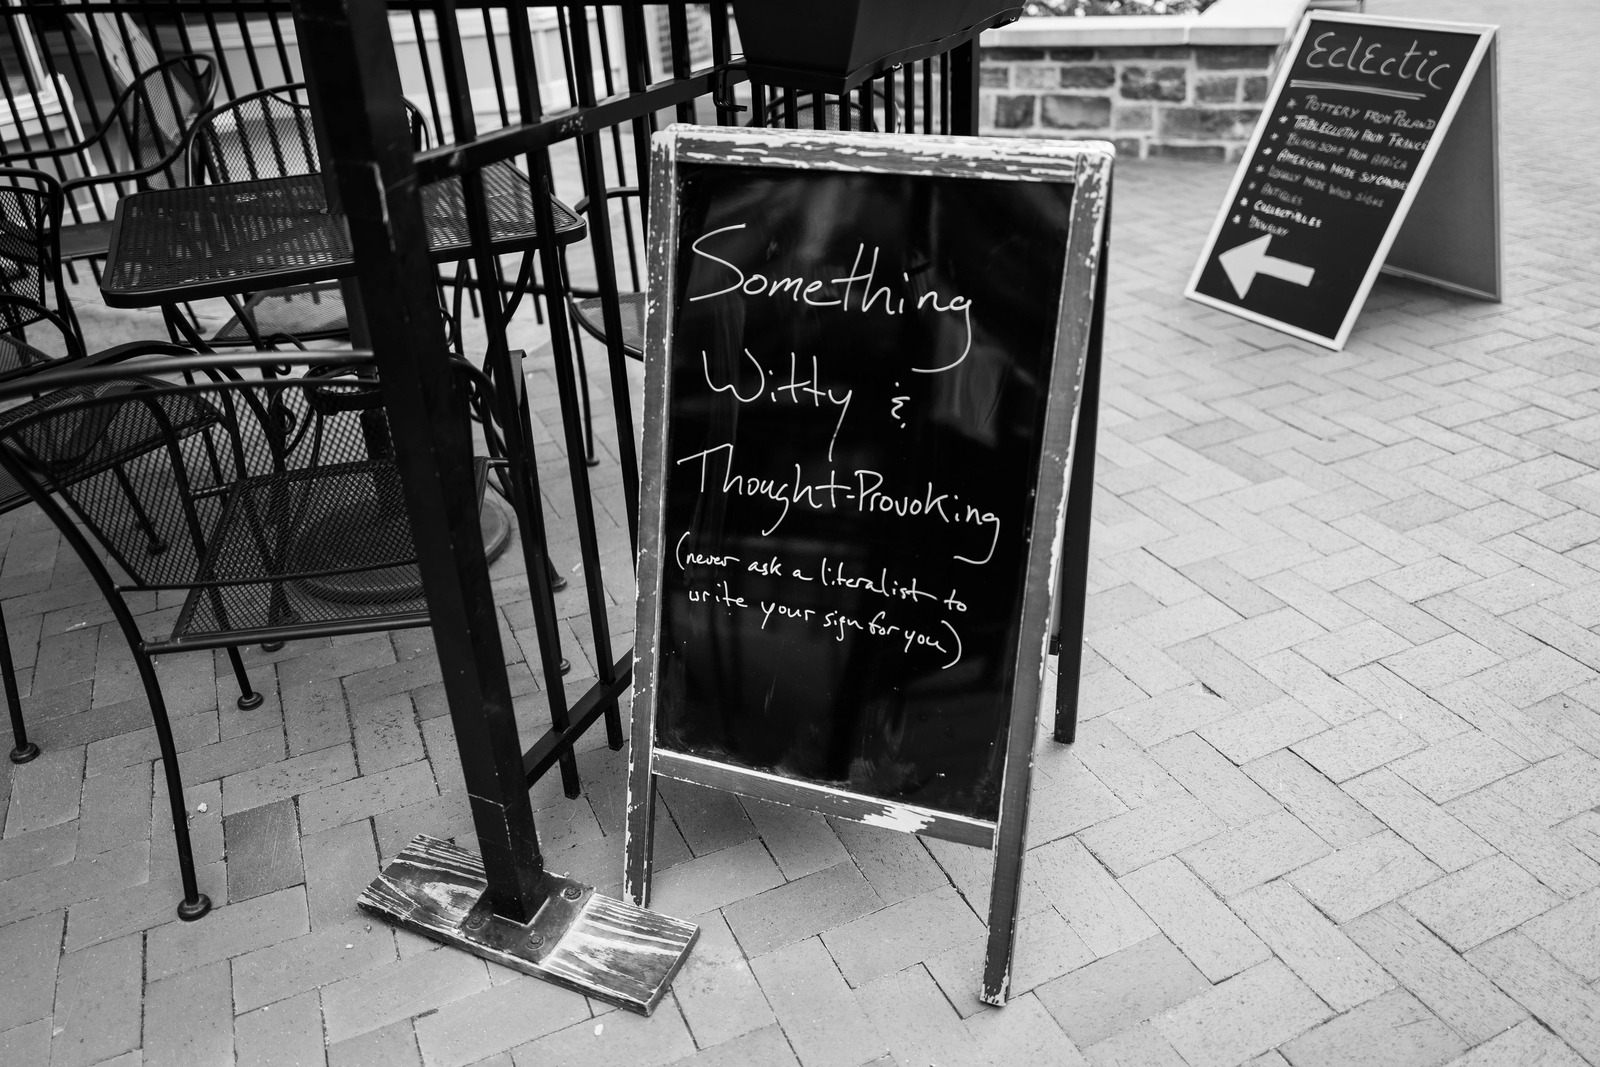 Something
Witty &
Thought-Provoking
(never ask a literalist to
write your sign for you)
EclEctic
* POTTERY FROM POLAND
* TABLECLOTH FROM FRANCE
* BLACK SOAP FROM AFRICA
* AMERICAN MADE SOY CANDLES
* LOCALLY MADE WOOD SIGNS
* ANTIQUES
* COLLECTIBLES
* JEWELRY